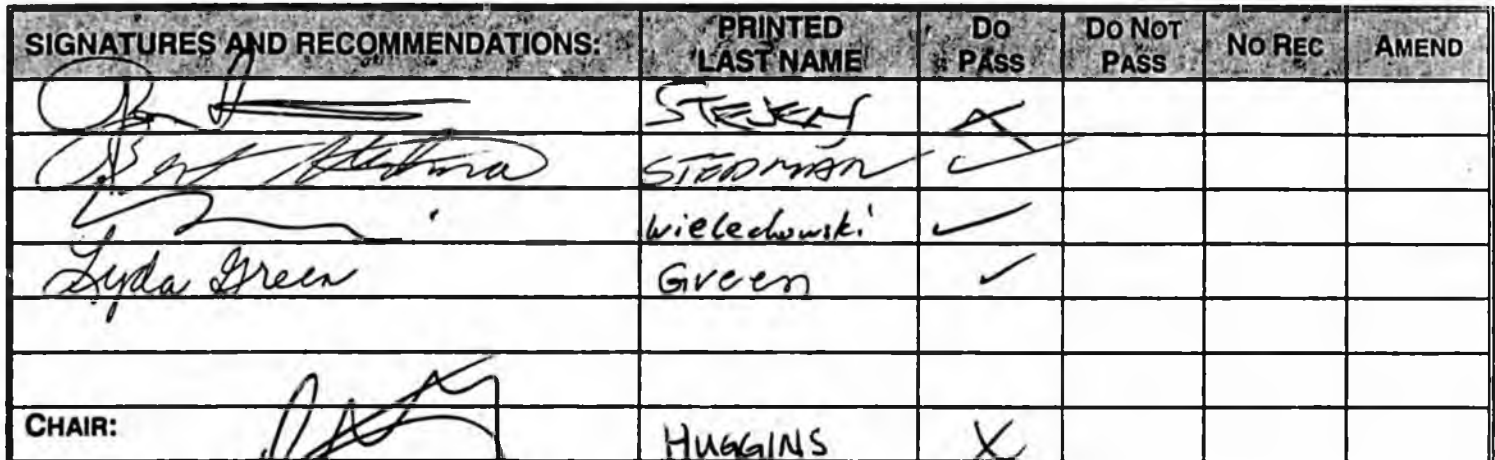 SIGNATURES AND RECOMMENDATIONS: PRINTED LAST NAME DO PASS DO NOT PASS NO REC AMEND
STEVENS
Bert Stedman STEDMAN ✓
Wielechowski ✓
Lyda Green Green ✓
CHAIR: HUGGINS X